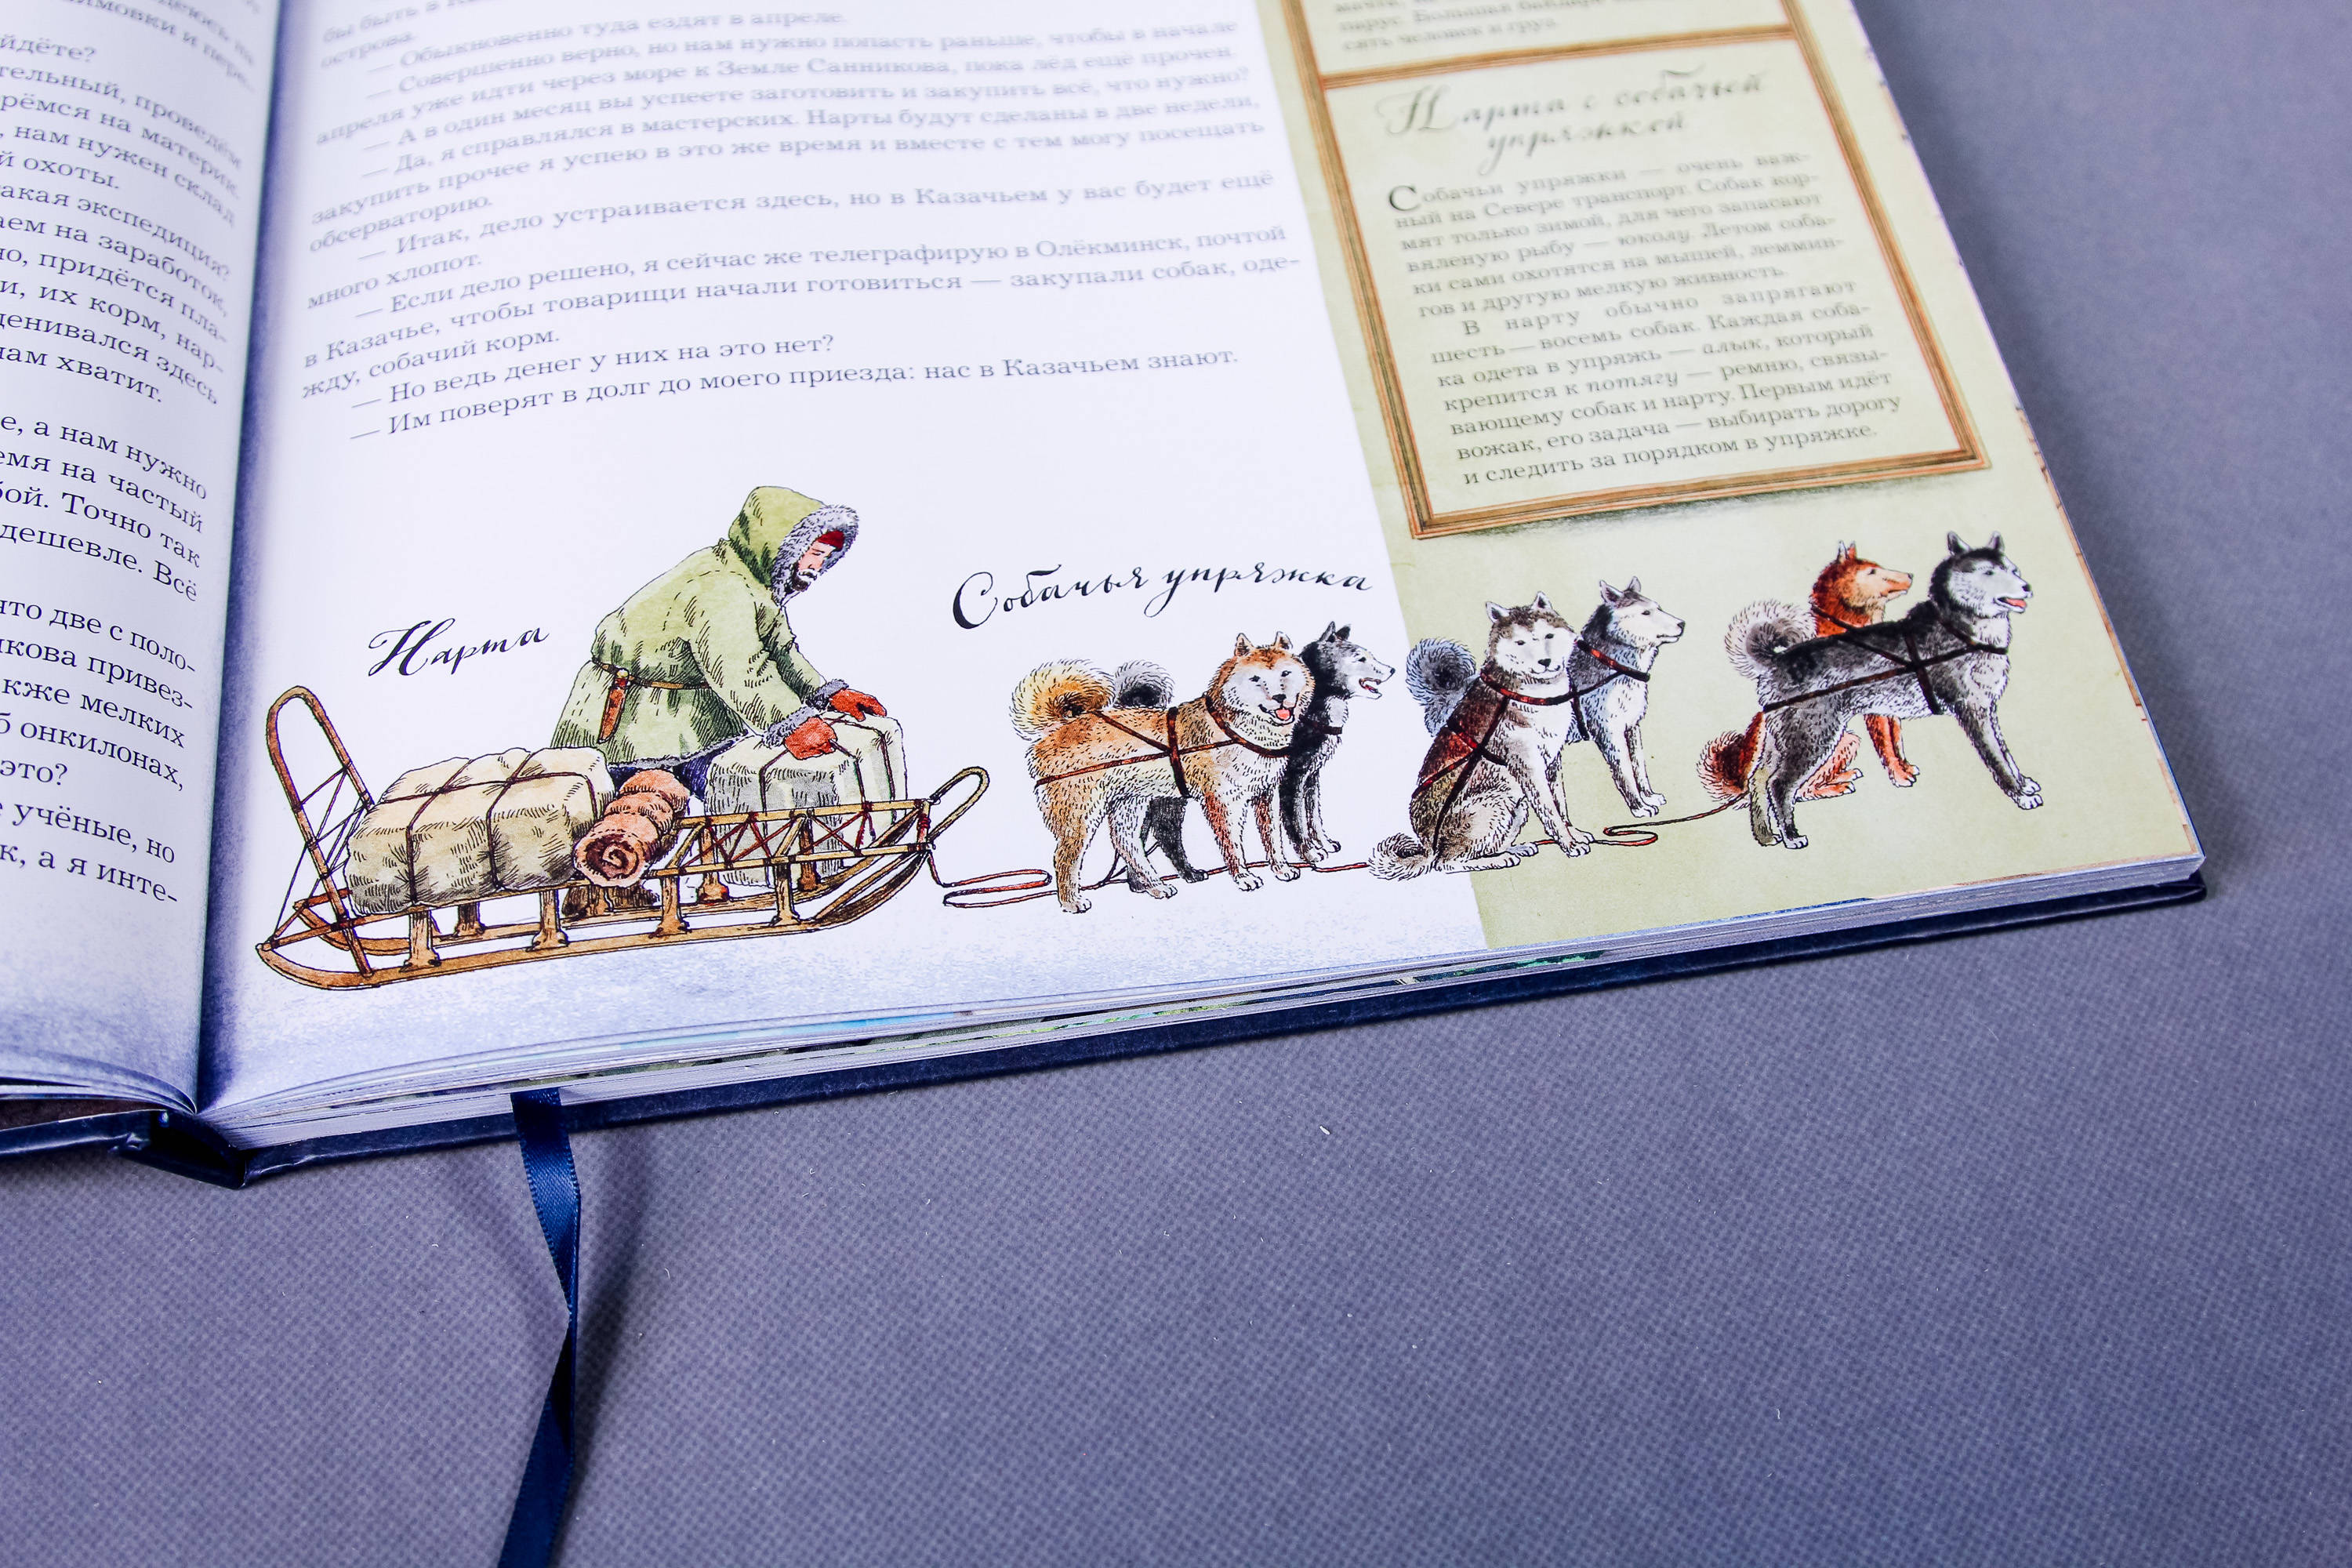 йдёте?
тельный, проведём
рёмся на материк.
, нам нужен склад
й охоты.
акая экспедиция?
аем на заработок,
но, придётся пла-
и, их корм, нар-
ценивался здесь
нам хватит.
е, а нам нужно
емя на частый
бой. Точно так
дешевле. Всё
что две с поло-
икова привез-
кже мелких
б онкилонах,
это?
е учёные, но
к, а я инте-
бы быть в
острова.
— Обыкновенно туда ездят в апреле.
— Совершенно верно, но нам нужно попасть раньше, чтобы в начале
апреля уже идти через море к Земле Санникова, пока лёд ещё прочен.
— А в один месяц вы успеете заготовить и закупить всё, что нужно?
— Да, я справлялся в мастерских. Нарты будут сделаны в две недели,
закупить прочее я успею в это же время и вместе с тем могу посещать
обсерваторию.
— Итак, дело устраивается здесь, но в Казачьем у вас будет ещё
много хлопот.
— Если дело решено, я сейчас же телеграфирую в Олёкминск, почтой
в Казачье, чтобы товарищи начали готовиться — закупали собак, оде-
жду, собачий корм.
— Но ведь денег у них на это нет?
— Им поверят в долг до моего приезда: нас в Казачьем знают.
Нарта
Собачья упряжка
парус. Большая байдара
сять человек и груз.
Нарта с собачьей
упряжкой
Собачьи упряжки — очень важ-
ный на Севере транспорт. Собак кор-
мят только зимой, для чего запасают
вяленую рыбу — юколу. Летом соба-
ки сами охотятся на мышей, леммин-
гов и другую мелкую живность.
В нарту обычно запрягают
шесть — восемь собак. Каждая соба-
ка одета в упряжь — алык, который
крепится к потягу — ремню, связы-
вающему собак и нарту. Первым идёт
вожак, его задача — выбирать дорогу
и следить за порядком в упряжке.